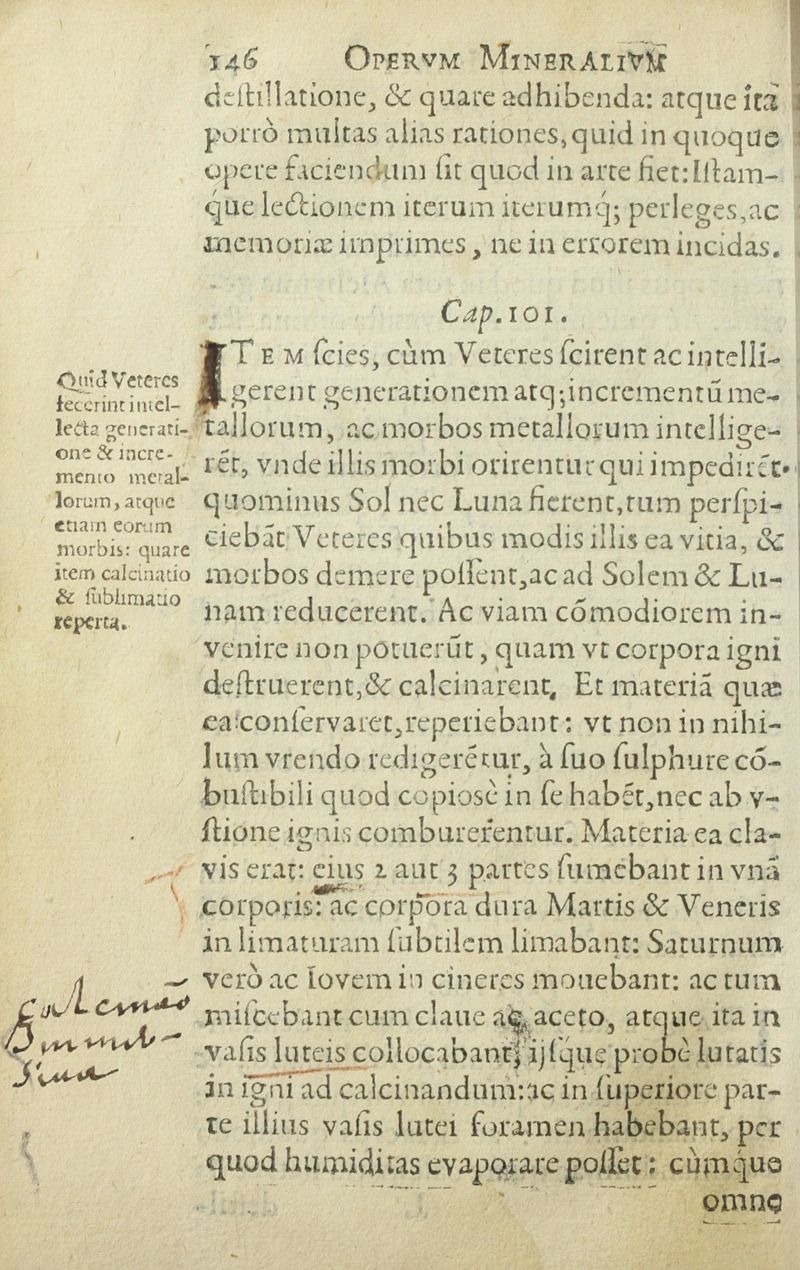 146 OPERVM MINERALIVM
destillatione, & quare adhibenda: atque ità
porrò multas alias rationes, quid in quoque
opere faciendum sit quod in arte fiet: Istam-
que lectionem iterum iterumq; perleges, ac
memoriæ imprimes, ne in errorem incidas.
Cap. 101.
ITEM scies, cùm Veteres scirent ac intelli-
gerent generationem atq; incrementũ me-
tallorum, ac morbos metallorum intellige-
rẽt, vnde illis morbi orirentur qui impedirẽt
quominus Sol nec Luna fierent, tum perspi-
ciebãt Veteres quibus modis illis ea vitia, &
morbos demere possent, ac ad Solem & Lu-
nam reducerent. Ac viam cõmodiorem in-
venire non potuerũt, quam vt corpora igni
destruerent, & calcinarent. Et materiã quæ
ea conservaret, reperiebant: vt non in nihi-
lum vrendo redigerẽtur, à suo sulphure cõ-
bustibili quod copiosè in se habẽt, nec ab v-
stione ignis comburerentur. Materia ea cla-
vis erat: eius 2 aut 3 partes sumebant in vnã
corporis: ac corpora dura Martis & Veneris
in limaturam subtilem limabant: Saturnum
verò ac Iovem in cineres mouebant: ac tum
miscebant cum claue ac aceto, atque ita in
vasis luteis collocabant, ijsque probè lutatis
in igni ad calcinandum: ac in superiore par-
te illius vasis lutei foramen habebant, per
quod humiditas evaporare posset: cùmque
omne
Quid Veteres
fecerint intel-
lecta generati-
one & incre-
mento metal-
lorum, atque
etiam eorum
morbis: quare
item calcinatio
& sublimatio
reperta.